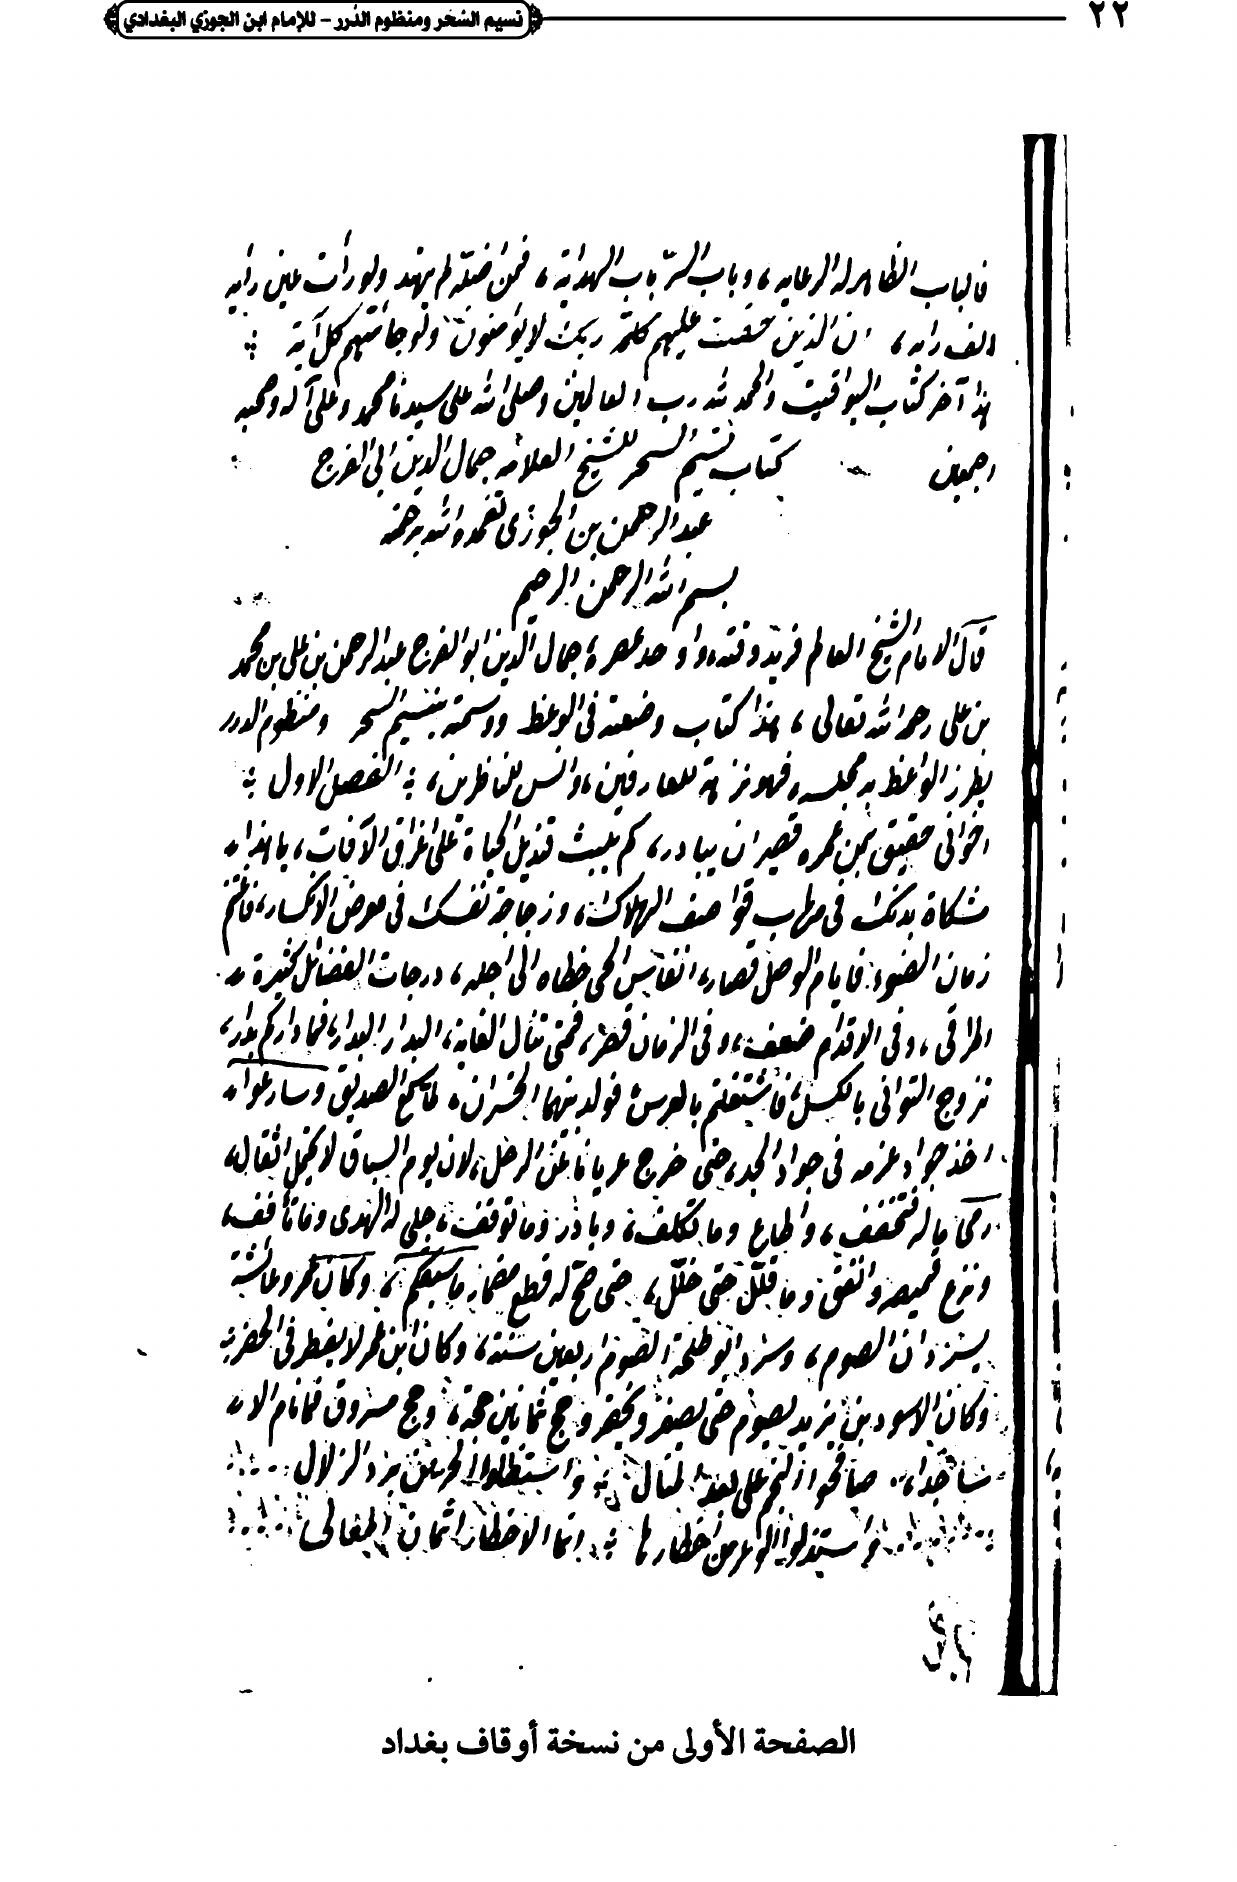 ٢٢
نسيم السحر ومنظوم الدرر - للإمام ابن الجوزي البغدادي
فالباب الظاهر له الرعاية، وباب السرّ باب الهداية، فمن اضلّه لم يهتد ولو رأت عين رأيه
الف راية، ان الذين حقت عليهم كلمة ربك لا يؤمنون ولو جاءتهم كل آية
هذا آخر كتاب اليواقيت والحمد لله رب العالمين وصلى الله على سيدنا محمد وعلى آله وصحبه
اجمعين كتاب نسيم السحر للشيخ العلامه جمال الدين ابي الفرج
عبد الرحمن بن الجوزى تغمده الله برحمته
بسم الله الرحمن الرحيم
قال الامام الشيخ العالم فريد وقته واوحد عصره جمال الدين ابو الفرج عبد الرحمن بن على بن محمد
بن على رحمه الله تعالى، هذا كتاب وضعته فى الوعظ ووسمته بنسيم السحر ومنظوم الدرر
يطرز الواعظ به مجلسه، فهو نزهة للعارفين، وانس للناظرين، الفصل الاول
اخوانى حقيق بمن عمره قصير ان يبادر، كم يلبث قنديل الحياة على اعراق الآفات، يا هذا
مشكاة بدنك فى مهاب قواصف الهلاك، وزجاجة نفسك فى معرض الانكسار، فاغتنم
زمان الضوء فايام الوصل قصار، انفاس الحى خطاه الى اجله، درجات الفضائل كثيرة
المراقى، وفى الاقدام ضعف، وفى الزمان قصر، فمتى تنال الغاية، البدار البدار، فما داركم بدار،
تزوج التوانى بالكسل، فاشتغلتم بالعرس فولد بينهما الخسران، لما سمع الصديق وسارعوا
اخذ جواد عزمه فى جواد الجد، حتى خرج عريانا عن الرحل، لان يوم السباق لا يحتمل اثقال،
رمى ماله فتخفف، واطاع وما تكلف، وبادر وما توقف، جلى له الهدى وما تأفف،
ونزع قميصه وانفق وما قلّل حتى خلّل، حتى صح له قطع مضمار ما سبقكم، وكان عمر وعائشة
يسردان الصوم، وسرد ابو طلحة الصوم اربعين سنة، وكان ابن عمر لا يفطر فى الحضر
وكان الاسود بن يزيد يصوم حتى يصفر ويخضر وحج ثمانين حجة، وحج مسروق فما نام الا
ساجدا، صافحوا النجم على بعد المنال واستظلوا الحر من برد الزلال
واستذلوا الوعر من اخطارها انما الاخطار اثمان المعالى
الصفحة الأولى من نسخة أوقاف بغداد